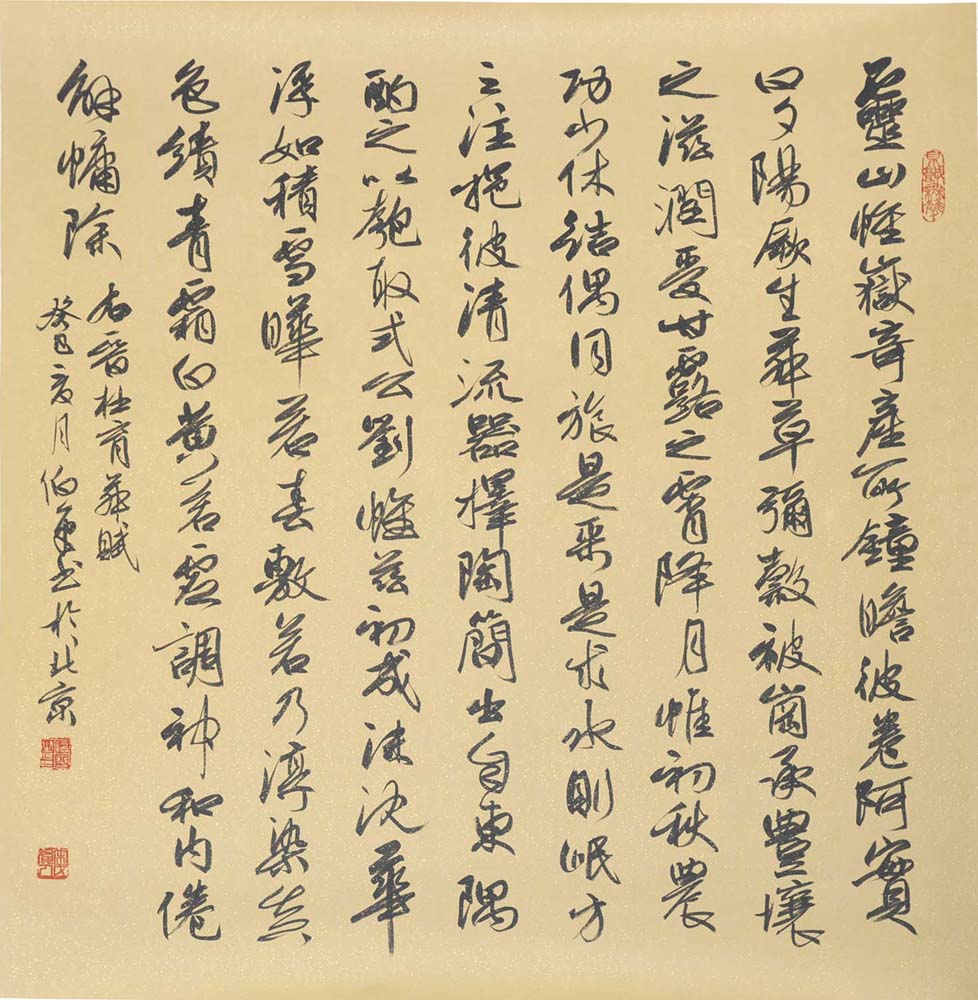 靈山惟嶽奇產所鐘瞻彼卷阿實
曰夕陽厥生荈草彌穀被崗承豐壤
之滋潤受甘露之霄降月惟初秋農
功少休結偶同旅是采是求水則岷方
之注挹彼清流器擇陶簡出自東隅
酌之以匏取式公劉惟茲初成沫沈華
浮如積雪曄若春敷若乃淳染真
色績青霜白黃若虛調神和內倦
解慵除
右晉杜育荈賦
癸巳夏月伯書於北京